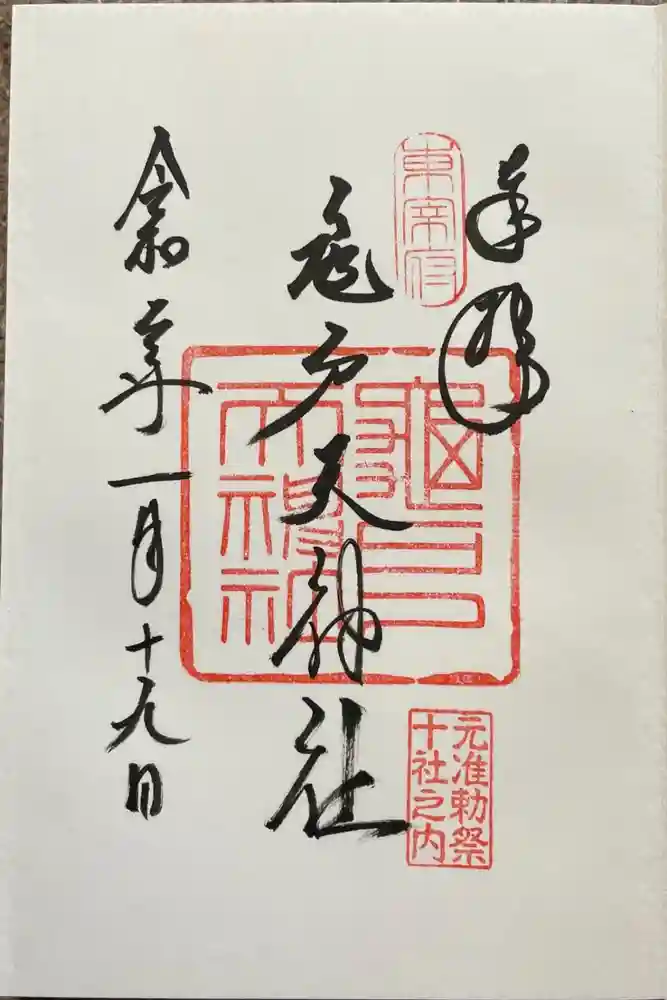 奉拝
東宰府
亀戸天神社
龜戸
天神社
元准勅祭
十社之内
令和二年一月十九日